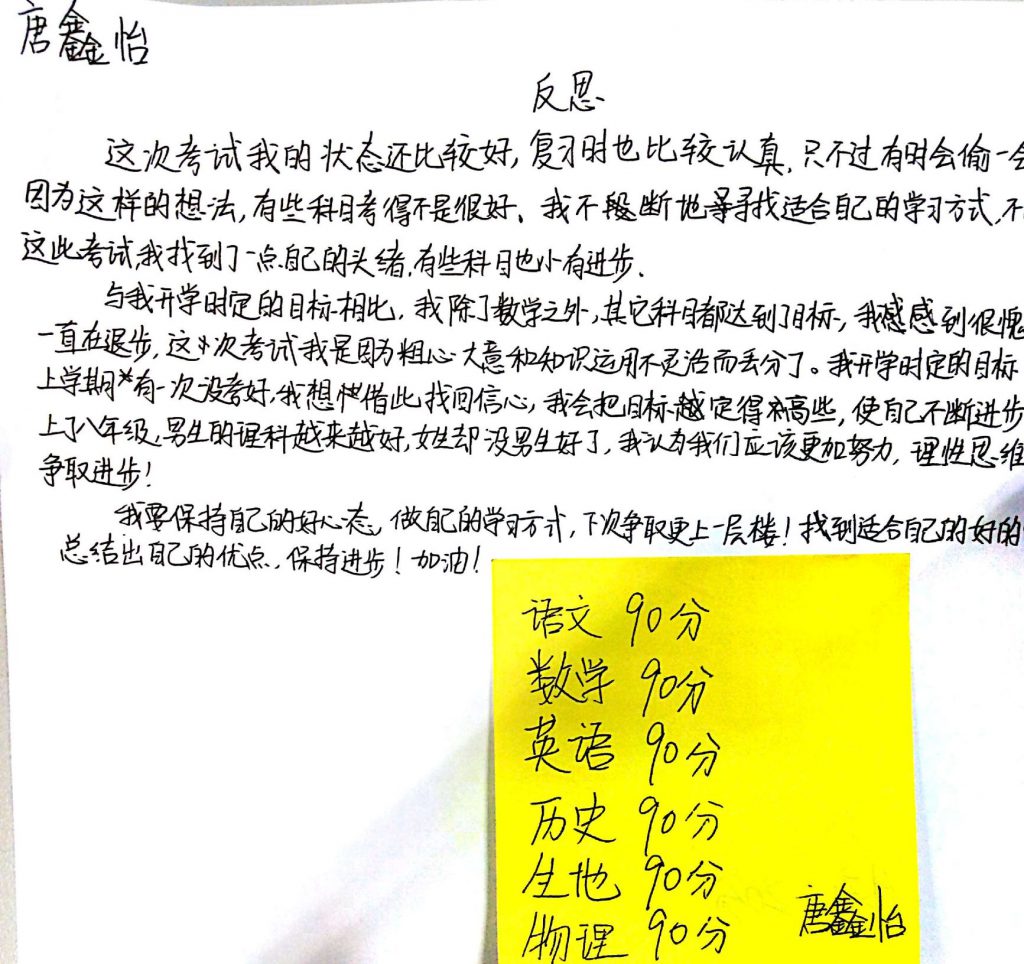 唐鑫怡
反思
这次考试我的状态还比较好,复习时也比较认真,只不过有时会偷一会
因为这样的想法,有些科目考得不是很好、我不断地寻找适合自己的学习方式,不
这此考试,我找到了一点自己的头绪,有些科目也小有进步、
与我开学时定的目标相比,我除了数学之外,其它科目都达到了目标,我感到很愧
一直在退步,这次考试我是因为粗心大意和知识运用不灵活而丢分了。我开学时定的目标
上学期有一次没考好,我想借此找回信心,我会把目标越定得高些,使自己不断进步
上了八年级,男生的理科越来越好,女生却没男生好了,我认为我们应该更加努力,理性思维
争取进步!
我要保持自己的好心态,做自己的学习方式,下次争取更上一层楼!找到适合自己的好的
总结出自己的优点,保持进步!加油!
语文 90分
数学 90分
英语 90分
历史 90分
生地 90分
物理 90分
唐鑫怡